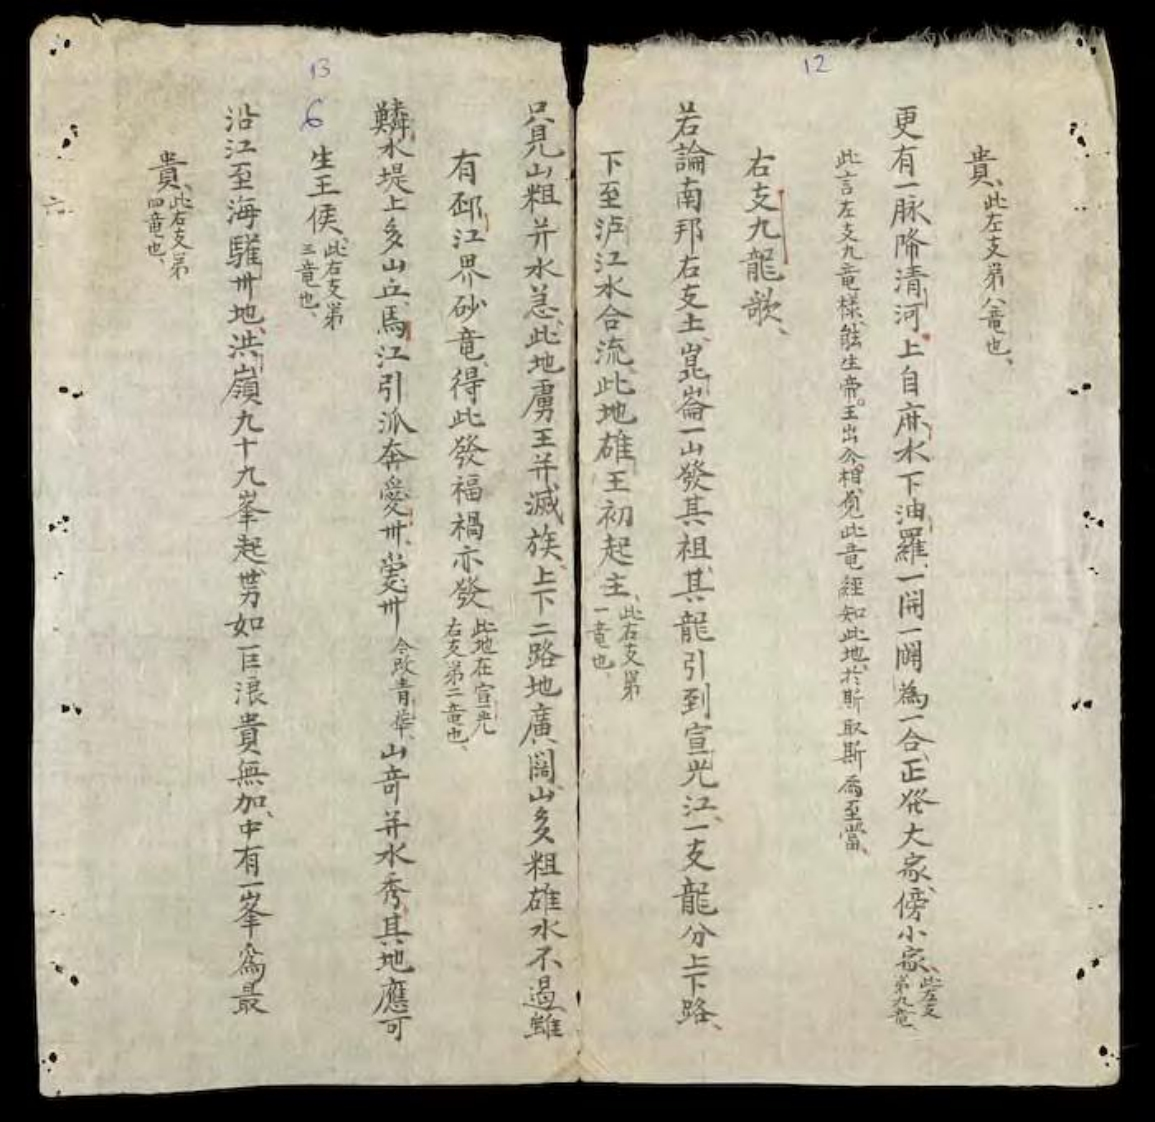 12
貴、此左支第八竜也、
更有一脉降清河上自麻水下油羅一開一闔為一合正發大家傍小家、此左支第九竜、
此言左支九竜様、能生帝王出公相、覓此竜經知此地、於斯取斯爲至當、
右支九龍歌、
若論南邦右支土崑崙一山發其祖、其龍引到宣光江、一支龍分上下路、
下至泸江水合流此地雄王初起主、此右支第一竜也、
只見山粗并水急此地虜王并滅族、上下二路地廣濶山多粗雄水不過雖
有邳江界砂竜得此發福禍亦發此地在宣光右支第二竜也、
13
6
鱗水堤上多山丘馬江引派奔愛州、愛州今改青華、山奇并水秀其地應可
生王侯、此右支第三竜也、
沿江至海驩州地、洪嶺九十九峯起、势如巨浪貴無加、中有一峯為最
貴、此右支第四竜也、